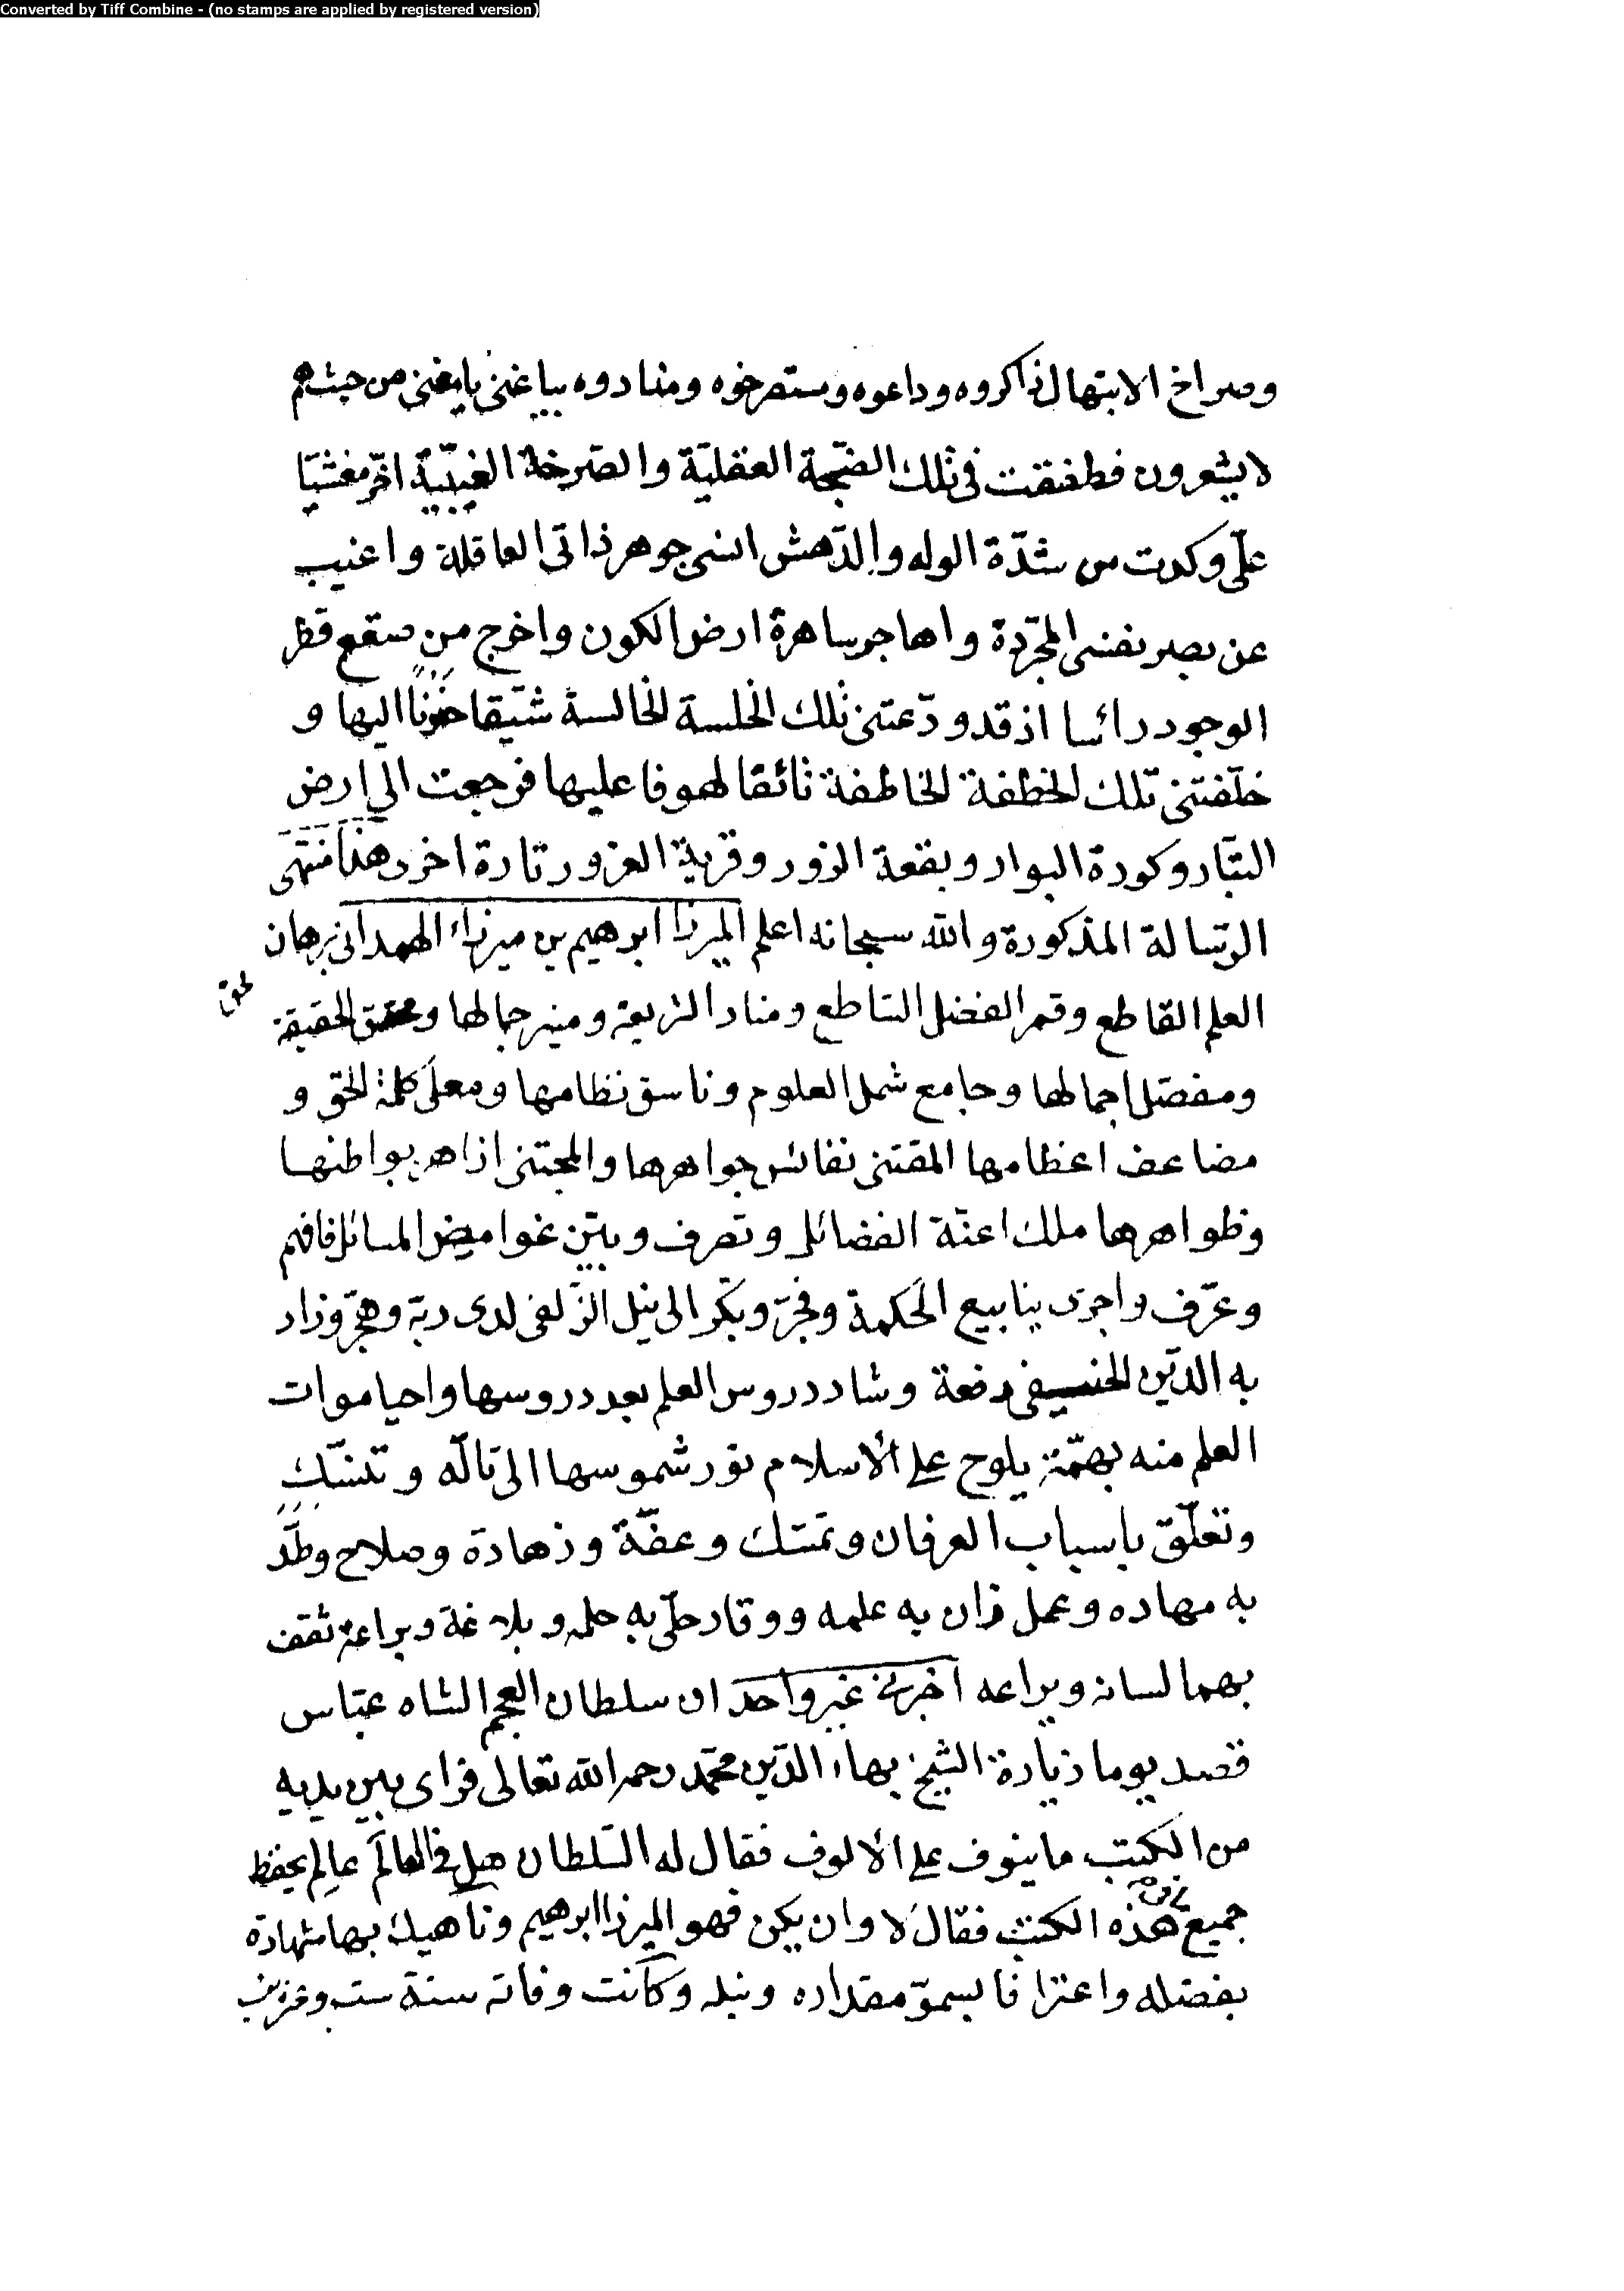 Converted by Tiff Combine - (no stamps are applied by registered version)
وصراخ الابتهال ذاكروه وداعوه ومستصرخوه ومنادوه بياغنى يامغنى من حيث هم
لا يشعرون فطفقت فى تلك الضجة العقلية والصرخة الغيبية اخر مغشيا
علىّ وكدت من شدّة الوله والدّهش انسى جوهر ذاتى العاقلة واغيب
عن بصر نفسى المجرّدة واهاجر ساهرة ارض الكون واخرج من صقع قطر
الوجود رائسا اذ قد ودّعتنى تلك الخلسة الخالسة شيّقا حنونا اليها و
خلّفتنى تلك الخطفة الخاطفة تائقا لهوفا عليها فرجعت الى ارض
التبار وكورة البوار وبقعة الزور وقرية الغرور تارة اخرى هذا منتهى
الرسالة المذكورة والله سبحانه اعلم الميرزا ابرهيم بن ميرزاء الهمدانى برهان
العلم القاطع وقمر الفضل الساطع ومنار الشريعة ومنير جمالها ومحقق الحقيقة
ومفصّل اجمالها وجامع شمل العلوم وناسق نظامها ومعلى كلمة الحق و
مضاعف اعظامها المقتنى نفائس جواهرها والمجتنى ازاهر بواطنها
وظواهرها ملك اعنّة الفضائل وتصرف وبيّن غوامض المسائل فافهم
وعرّف واجرى ينابيع الحكمة وفجّر وبكّر الى نيل الزلفى لدى ربه وهجّر وزاد
به الدّين الحنيفى رفعة وشاد دروس العلم بعد دروسها واحيا موات
العلم منه بهمّة يلوح على الاسلام نور شموسها الى تألّه وتنسّك
وتعلّق باسباب العرفان وتمسّك وعفّة وزهادة وصلاح وطّد
به مهاده وعمل زان به علمه ووقار حلّى به حلمه وبلاغة وبراعة ثقف
بهما لسانه ويراعه اخبرنى غير واحد ان سلطان العجم الشاه عبّاس
قصد يوما زيارة الشيخ بهاء الدّين محمّد رحمه الله تعالى فراى بين يديه
من الكتب ما ينوف على الالوف فقال له السّلطان هل فى العالَم عالِم يحفظ
جميع هذه الكتب فقال لا وان يكن فهو الميرزا ابرهيم وناهيك بها شهادة
بفضله واعترافا بسموّ مقداره ونبله وكانت وفاته سنة ست وعشرين